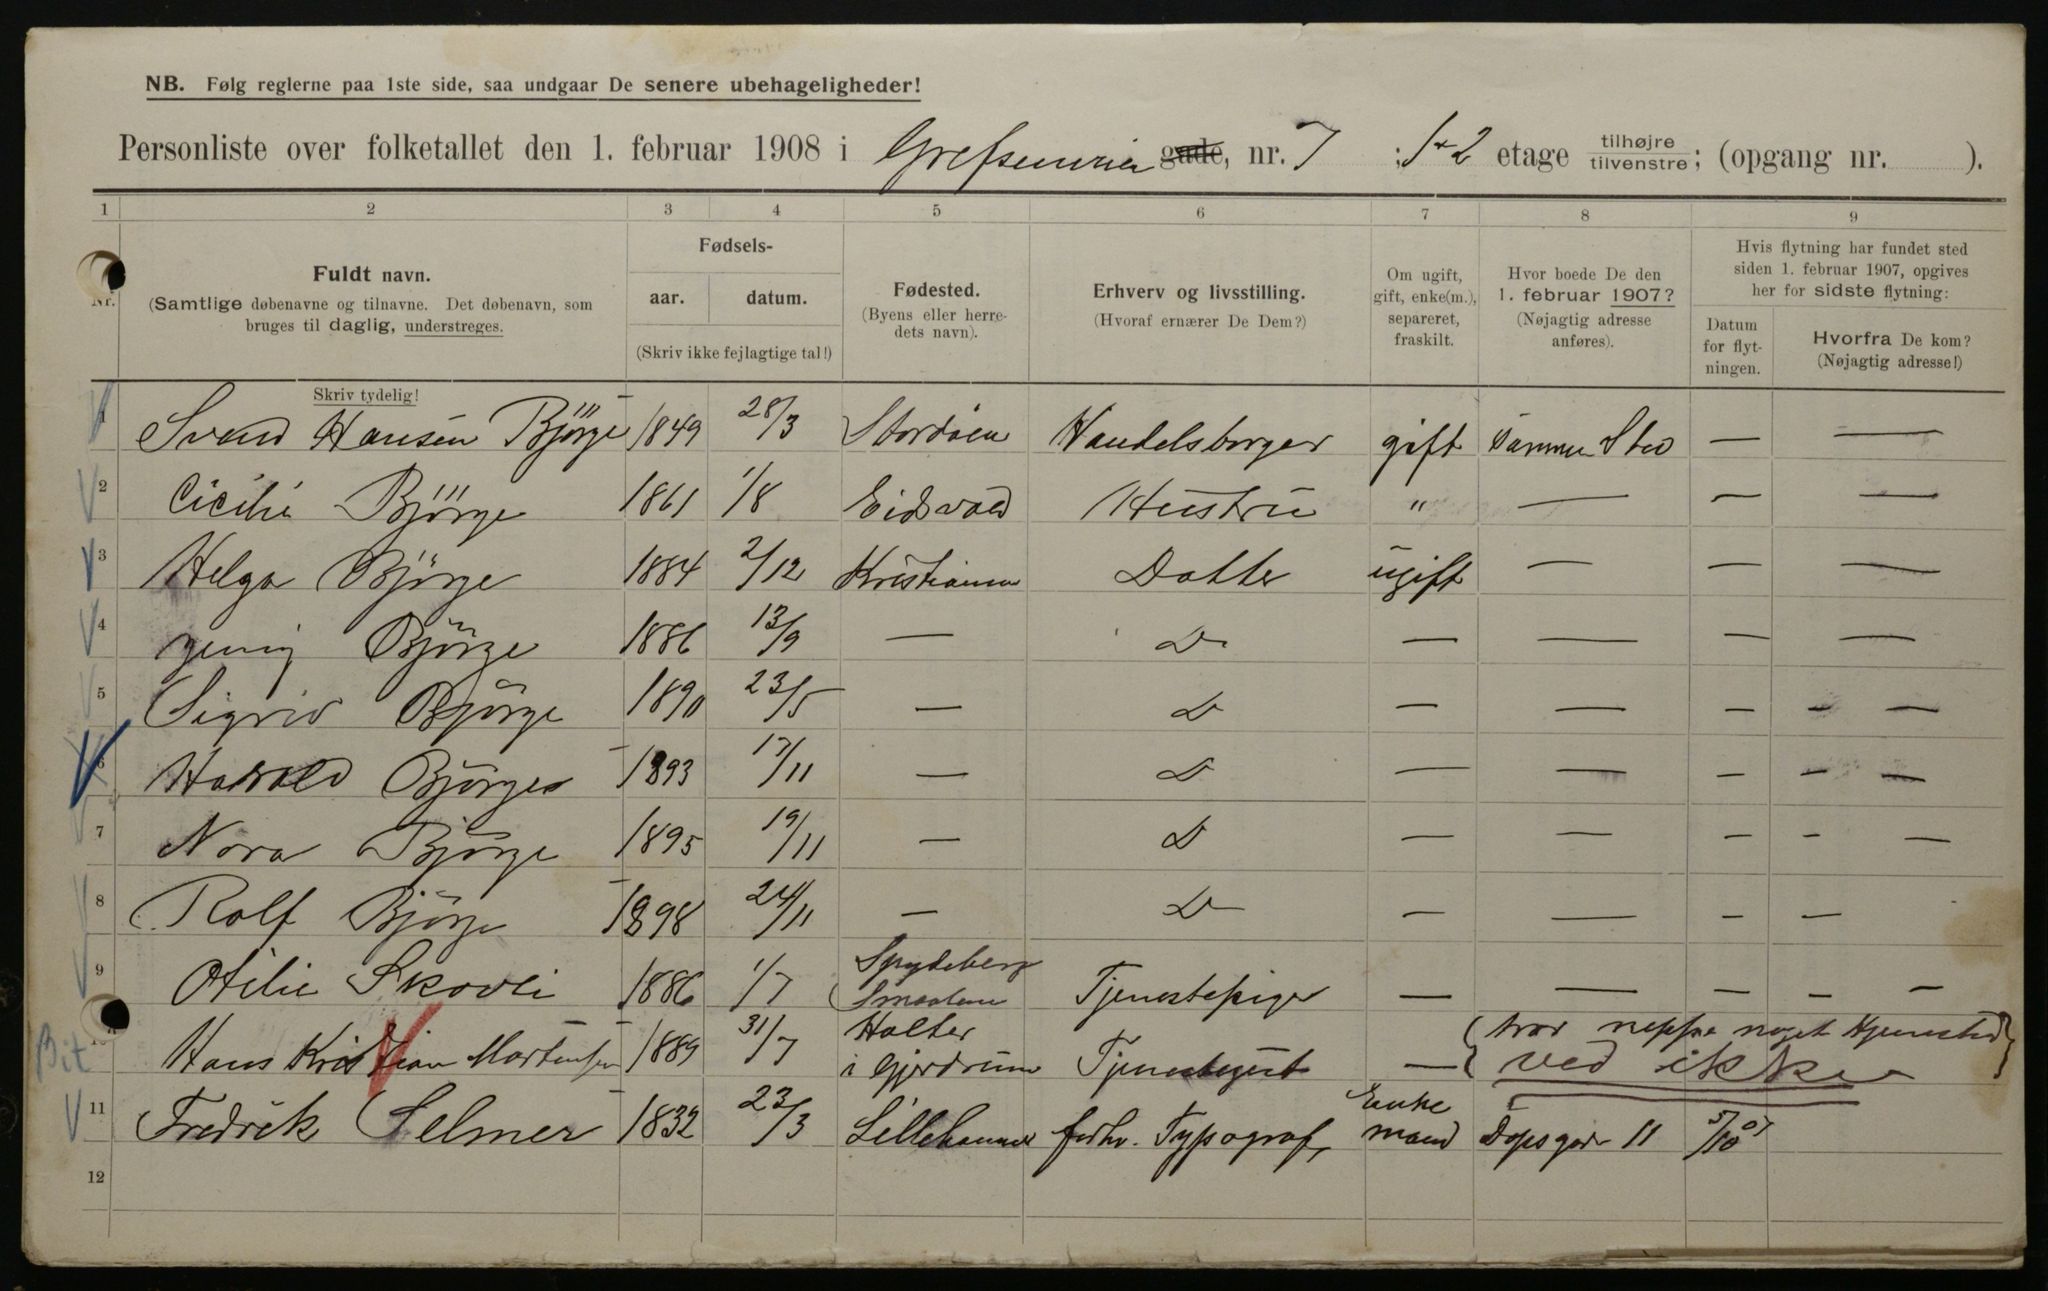 NB. Følg reglerne paa 1ste side, saa undgaar De senere ubehageligheder!
Personliste over folketallet den 1. februar 1908 i Grefsenveien gade, nr. 7 ; 1+2 etage tilhøjre tilvenstre; (opgang nr. ).
1 2 3 4 5 6 7 8 9
Nr. Fuldt navn. (Samtlige døbenavne og tilnavne. Det døbenavn, som bruges til daglig, understreges.
Fødsels- aar. datum. (Skriv ikke fejlagtige tal!)
Fødested. (Byens eller herredets navn).
Erhverv og livsstilling. (Hvoraf ernærer De Dem?)
Om ugift, gift, enke(m.), separeret, fraskilt.
Hvor boede De den 1. februar 1907? (Nøjagtig adresse anføres).
Hvis flytning har fundet sted siden 1. februar 1907, opgives her for sidste flytning:
Datum for flytningen.
Hvorfra De kom? (Nøjagtig adresse!)
Skriv tydelig!
1 Svend Hansen Björge 1849 28/3 Stordöen Handelsborger gift samme Sted — —
2 Cicilie Björge 1861 1/8 Eidsvold Hustru " — — —
3 Helga Björge 1884 2/12 Kristiania Datter ugift — — —
4 Björge 1886 13/9 — D — — — —
5 Sigrid Björge 1890 23/5 — D — — — — —
6 Harald Björge 1893 17/11 — D — — — — —
7 Nora Björge 1895 19/11 — D — — — — —
8 Rolf Björge 1898 24/11 — D — — — —
9 Otilie Skovli 1886 1/7 Spydeberg Smaalene Tjenestepige — — — — —
Bit 10 Hans Kristian Mortensen 1889 31/7 Holter i Gjerdrum Tjenestegut — (har neppe noget Hjemsted ved ikke)
11 Fredrik Selmer 1832 23/3 Lillehammer forhv. Typograf, Enke mand Dopsgade 11 5/10 07
12